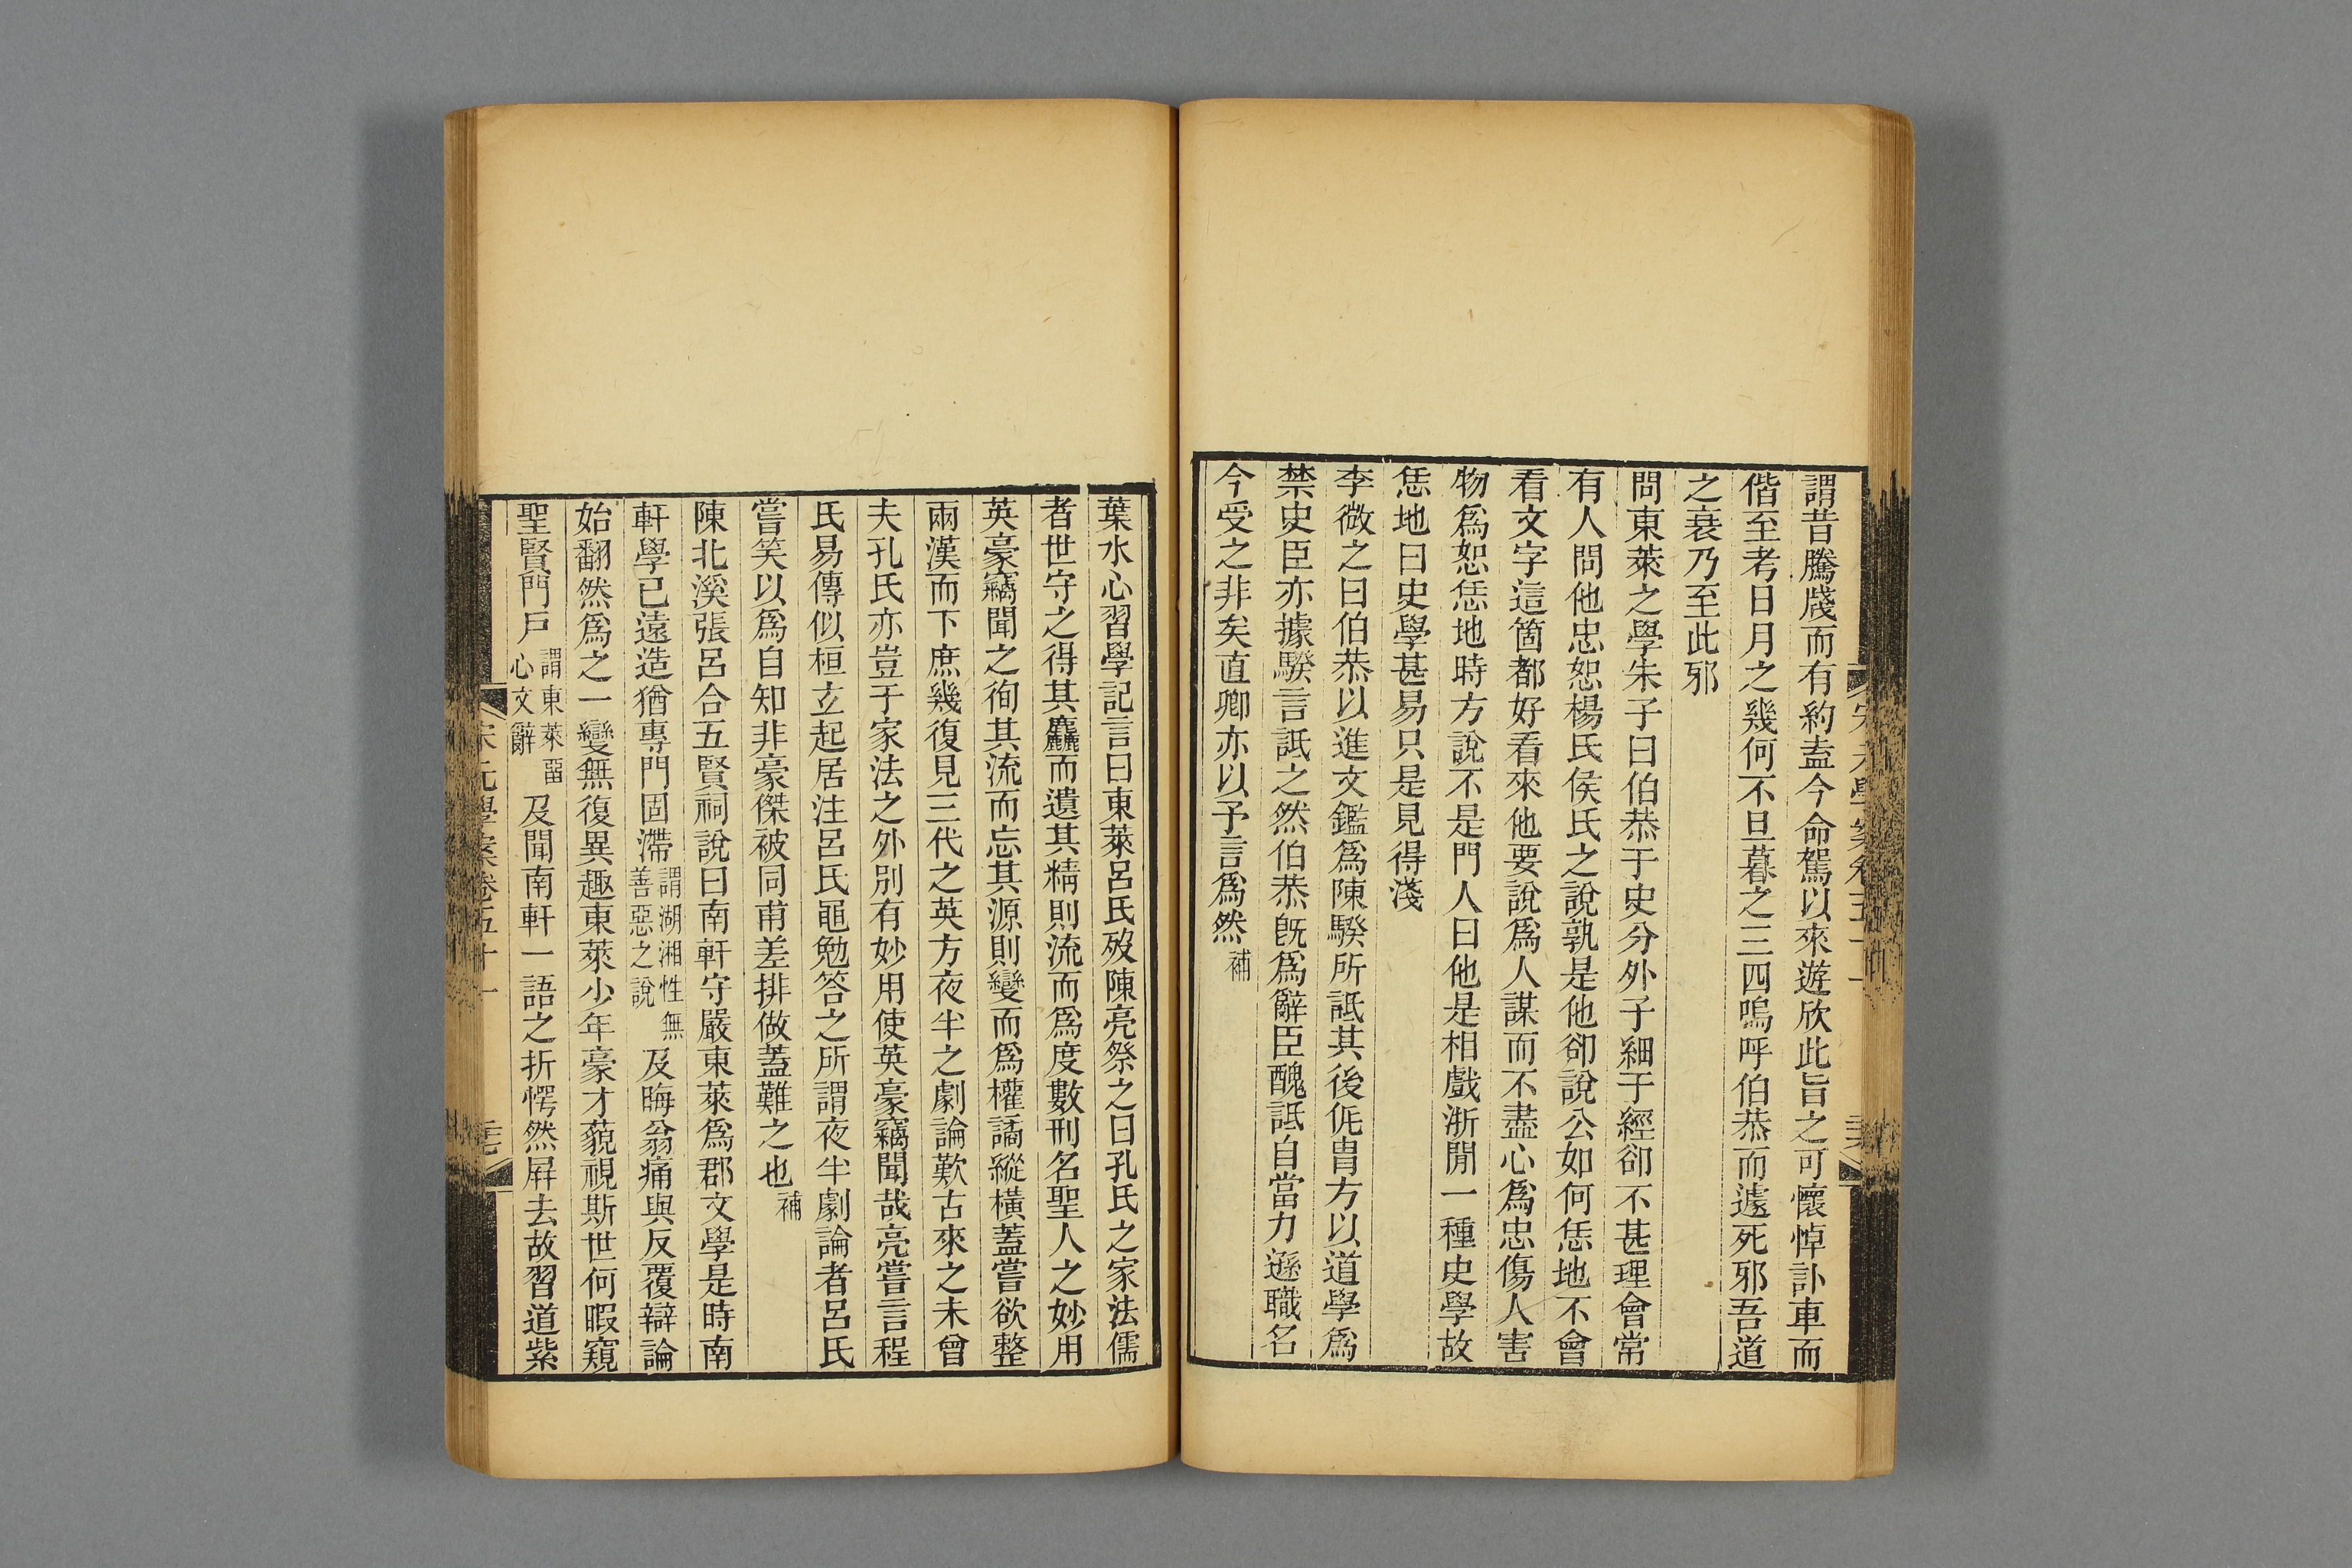 謂昔騰牋而有約盍今命駕以來遊欣此旨之可懷悼訃車而
偕至考日月之幾何不旦暮之三四嗚呼伯恭而遽死邪吾道
之衰乃至此邪
問東萊之學朱子曰伯恭于史分外子細于經卻不甚理會常
有人問他忠恕楊氏侯氏之說孰是他卻說公如何恁地不會
看文字這箇都好看來他要說爲人謀而不盡心爲忠傷人害
物爲恕恁地時方說不是門人曰他是相戲浙閒一種史學故
恁地曰史學甚易只是見得淺
李微之曰伯恭以進文鑑爲陳騤所詆其後侂胄方以道學爲
禁史臣亦據騤言詆之然伯恭旣爲辭臣醜詆自當力遜職名
今受之非矣直卿亦以予言爲然補
葉水心習學記言曰東萊呂氏歿陳亮祭之曰孔氏之家法儒
者世守之得其麤而遺其精則流而爲度數刑名聖人之妙用
英豪竊聞之徇其流而忘其源則變而爲權譎縱橫蓋嘗欲整
兩漢而下庶幾復見三代之英方夜半之劇論歎古來之未曾
夫孔氏亦豈于家法之外別有妙用使英豪竊聞哉亮嘗言程
氏易傳似桓玄起居注呂氏黽勉答之所謂夜半劇論者呂氏
嘗笑以爲自知非豪傑被同甫差排做蓋難之也補
陳北溪張呂合五賢祠說曰南軒守嚴東萊爲郡文學是時南
軒學已遠造猶專門固滯謂湖湘性無善惡之說及晦翁痛與反覆辯論
始翻然爲之一變無復異趣東萊少年豪才藐視斯世何暇窺
聖賢門戶謂東萊畱心文辭及聞南軒一語之折愕然屏去故習道紫
宋元學案卷五十一